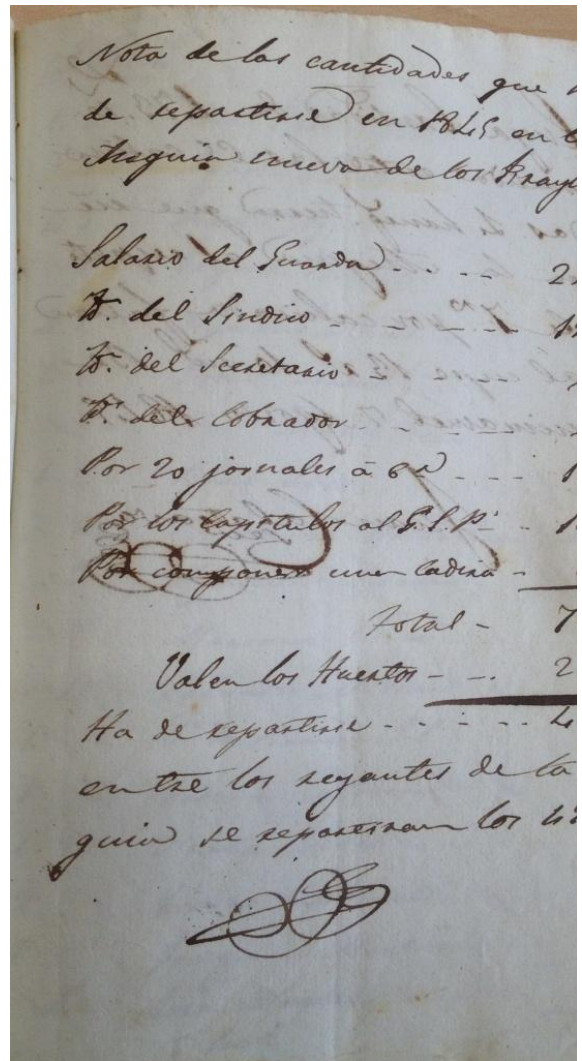 Nota de las cantidades que
de repartirse en 1845 en
nueva de los
Salario del Guarda - - - 2
Yd. del Sindico - - 1
Yd. del Secretario - -
Yd. del Cobrador - - -
Por 20 jornales á 6 - - - 1
Por los Capitulos al - 1
Por componer una Cadira -
Total - 7
Valen los Huertos - - 2
Ha de repartirse - - - - 4
entre los regantes de la
guia se repartiran los